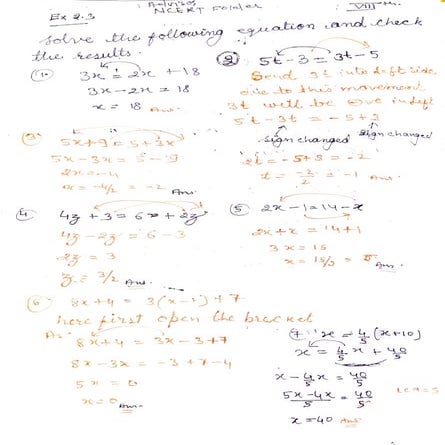 NCERT Folder
VIII
Ex 2.3
Solve the following equation and check
the results.
(1) 3x = 2x + 18
3x - 2x = 18
x = 18 Ans.
(2) 5t - 3 = 3t - 5
Send 3t into left side
due to this movement
3t will be ⊖ve in left
5t - 3t = -5 + 3
sign changed sign changed
2t = -5 + 3 = -2
t = -2/2 = -1 Ans.
(3) 5x + 9 = 5 + 3x
5x - 3x = 5 - 9
2x = -4
x = -4/2 = -2 Ans.
(4) 4z + 3 = 6 + 2z
4z - 2z = 6 - 3
2z = 3
z = 3/2 Ans.
(5) 2x - 1 = 14 - x
2x + x = 14 + 1
3x = 15
x = 15/3 = 5 Ans.
(6) 8x + 4 = 3(x - 1) + 7
here first open the bracket
8x + 4 = 3x - 3 + 7
8x - 3x = -3 + 7 - 4
5x = 0
x = 0 Ans.
7. x = 4/5 (x + 10)
x = 4/5 x + 40/5
x - 4/5 x = 40/5
5x - 4x / 5 = 40/5
x = 40 Ans.